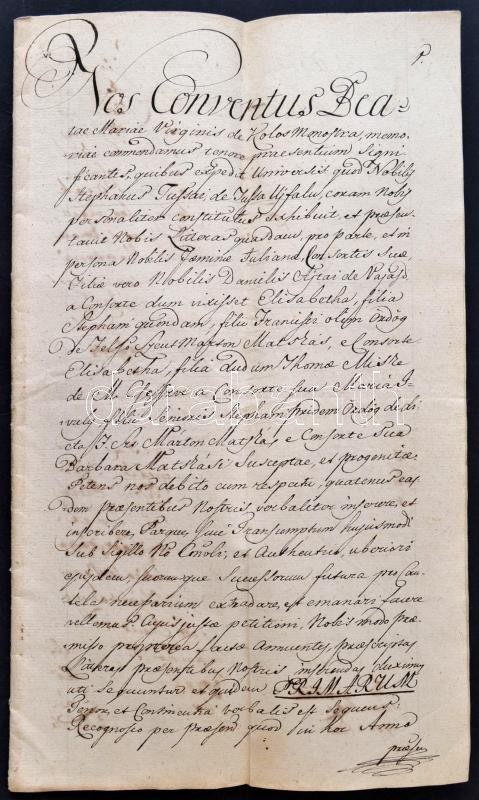 P.
Nos Conventus Bea-
tae Mariae Virginis de Kolos Monostra, memo-
riae commendamus tenore praesentium signi
ficantes, quibus expedit Universis quod Nobilis
Stephanus Tussai, de Tussa Ujfalu, coram Nobis
personaliter constitutus exhibuit, et praesen-
tavit Nobis Literas quasdam, pro parte, et in
persona Nobilis Faeminae Julianae, Consortis suae,
Filiae vero Nobilis Danielis de
a Consorte dum vixisset Elisabetha, filia
Stephani quondam, filii Francisci olim Ördög
de Marton Matskás, e Consorte
Elisabetha, filia dudum Thomae Miske
de M. a Consorte sua Maria
filii Senioris Stephani pridem Ördög de
Marton Matskás e Consorte Sua
Barbara Matskási Susceptae, et progenitae
Petens nos debito cum respectu, quatenus eas
dem praesentibus Nostris verbaliter inserere, et
inscribere, Parque, sui Transumptum hujusmodi
Sub Sigillo et Authentico, uberiori
ejusdem, suorumque Successorum futura pro Cau-
tela necessarium extradare, et emanari facere
vellemus Cujus justae petitioni, Nobis modo prae-
misso propterea factae Annuentes, praescriptas
Literas praesentibus Nostris inserendas duximus
uti sequuntur et quidem PRIMARUM
Tenor, et Continentia verbalis est Sequens.
Recognosco per praesens quod in hoc Anno
praesen
darabanth